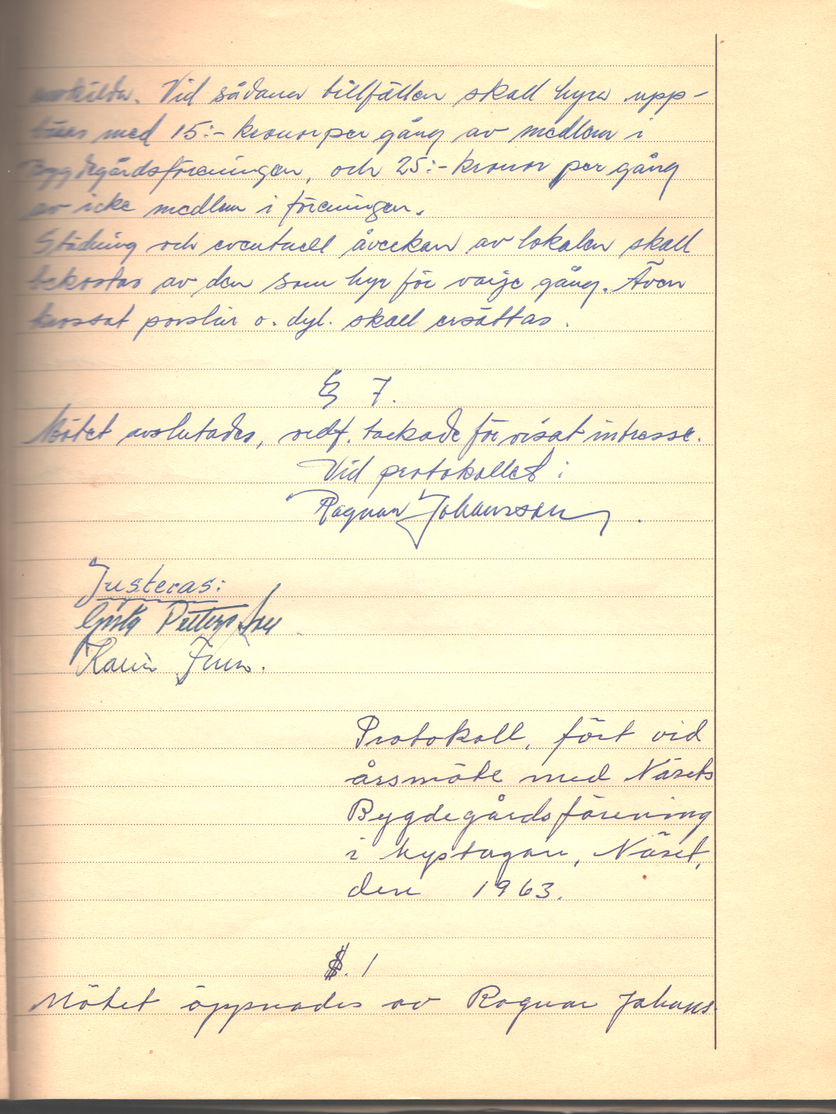 enskilda. Vid sådana tillfällen skall hyra upp-
bäras med 15:- kronor per gång av medlem i
Bygdegårdsföreningen, och 25:- kronor per gång
av icke medlem i föreningen.
Städning och eventuell åverkan av lokalen skall
bekostas av den som hyr för varje gång. Även
krossat porslin o. dyl. skall ersättas.
§ 7.
Mötet avslutades, ordf. tackade för visat intresse.
Vid protokollet:
Ragnar Johansson.
Justeras:
Gösta Petersson
Karin
Protokoll, fört vid
årsmöte med Näsets
Bygdegårdsförening
i Näset,
den 1963.
§. 1
Mötet öppnades av Ragnar Johans-